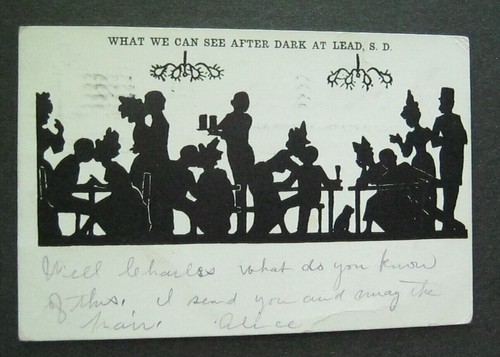 WHAT WE CAN SEE AFTER DARK AT LEAD, S. D.
Well Charles what do you know
of this. I send you and the
hair. Alice